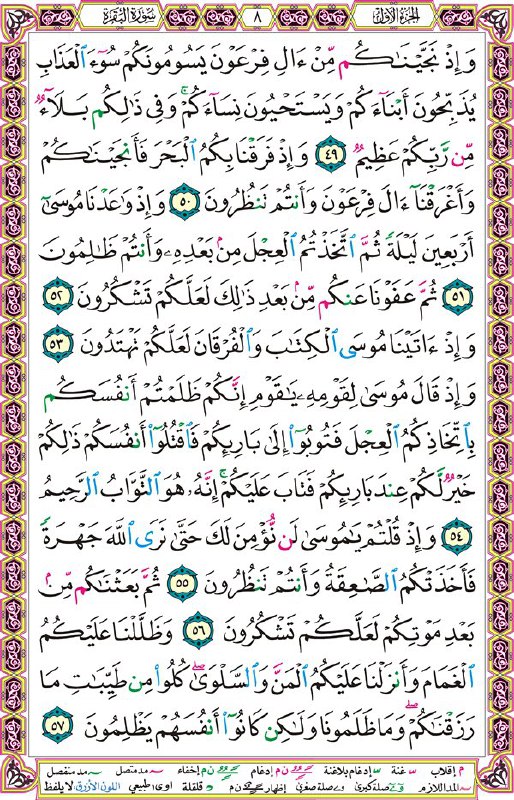 الجزء الأول ٨ سورة البقرة
وَإِذْ نَجَّيْنَٰكُم مِّنْ ءَالِ فِرْعَوْنَ يَسُومُونَكُمْ سُوٓءَ ٱلْعَذَابِ
يُذَبِّحُونَ أَبْنَآءَكُمْ وَيَسْتَحْيُونَ نِسَآءَكُمْ ۚ وَفِى ذَٰلِكُم بَلَآءٌ
مِّن رَّبِّكُمْ عَظِيمٌ ٤٩ وَإِذْ فَرَقْنَا بِكُمُ ٱلْبَحْرَ فَأَنجَيْنَٰكُمْ
وَأَغْرَقْنَآ ءَالَ فِرْعَوْنَ وَأَنتُمْ تَنظُرُونَ ٥٠ وَإِذْ وَٰعَدْنَا مُوسَىٰٓ
أَرْبَعِينَ لَيْلَةً ثُمَّ ٱتَّخَذْتُمُ ٱلْعِجْلَ مِنۢ بَعْدِهِۦ وَأَنتُمْ ظَٰلِمُونَ
٥١ ثُمَّ عَفَوْنَا عَنكُم مِّنۢ بَعْدِ ذَٰلِكَ لَعَلَّكُمْ تَشْكُرُونَ ٥٢
وَإِذْ ءَاتَيْنَا مُوسَى ٱلْكِتَٰبَ وَٱلْفُرْقَانَ لَعَلَّكُمْ تَهْتَدُونَ ٥٣
وَإِذْ قَالَ مُوسَىٰ لِقَوْمِهِۦ يَٰقَوْمِ إِنَّكُمْ ظَلَمْتُمْ أَنفُسَكُم
بِٱتِّخَاذِكُمُ ٱلْعِجْلَ فَتُوبُوٓا۟ إِلَىٰ بَارِئِكُمْ فَٱقْتُلُوٓا۟ أَنفُسَكُمْ ذَٰلِكُمْ
خَيْرٌ لَّكُمْ عِندَ بَارِئِكُمْ فَتَابَ عَلَيْكُمْ ۚ إِنَّهُۥ هُوَ ٱلتَّوَّابُ ٱلرَّحِيمُ
٥٤ وَإِذْ قُلْتُمْ يَٰمُوسَىٰ لَن نُّؤْمِنَ لَكَ حَتَّىٰ نَرَى ٱللَّهَ جَهْرَةً
فَأَخَذَتْكُمُ ٱلصَّٰعِقَةُ وَأَنتُمْ تَنظُرُونَ ٥٥ ثُمَّ بَعَثْنَٰكُم مِّنۢ
بَعْدِ مَوْتِكُمْ لَعَلَّكُمْ تَشْكُرُونَ ٥٦ وَظَلَّلْنَا عَلَيْكُمُ
ٱلْغَمَامَ وَأَنزَلْنَا عَلَيْكُمُ ٱلْمَنَّ وَٱلسَّلْوَىٰ ۖ كُلُوا۟ مِن طَيِّبَٰتِ مَا
رَزَقْنَٰكُمْ ۖ وَمَا ظَلَمُونَا وَلَٰكِن كَانُوٓا۟ أَنفُسَهُمْ يَظْلِمُونَ ٥٧
م إقلاب غنة إدغام بلاغنة ن م إدغام ن م إخفاء مد متصل مد منفصل
المد اللازم صلة كبرى صلة صغرى إظهار ن م قلقلة اوى طبيعي اللون الأزرق لا يلفظ